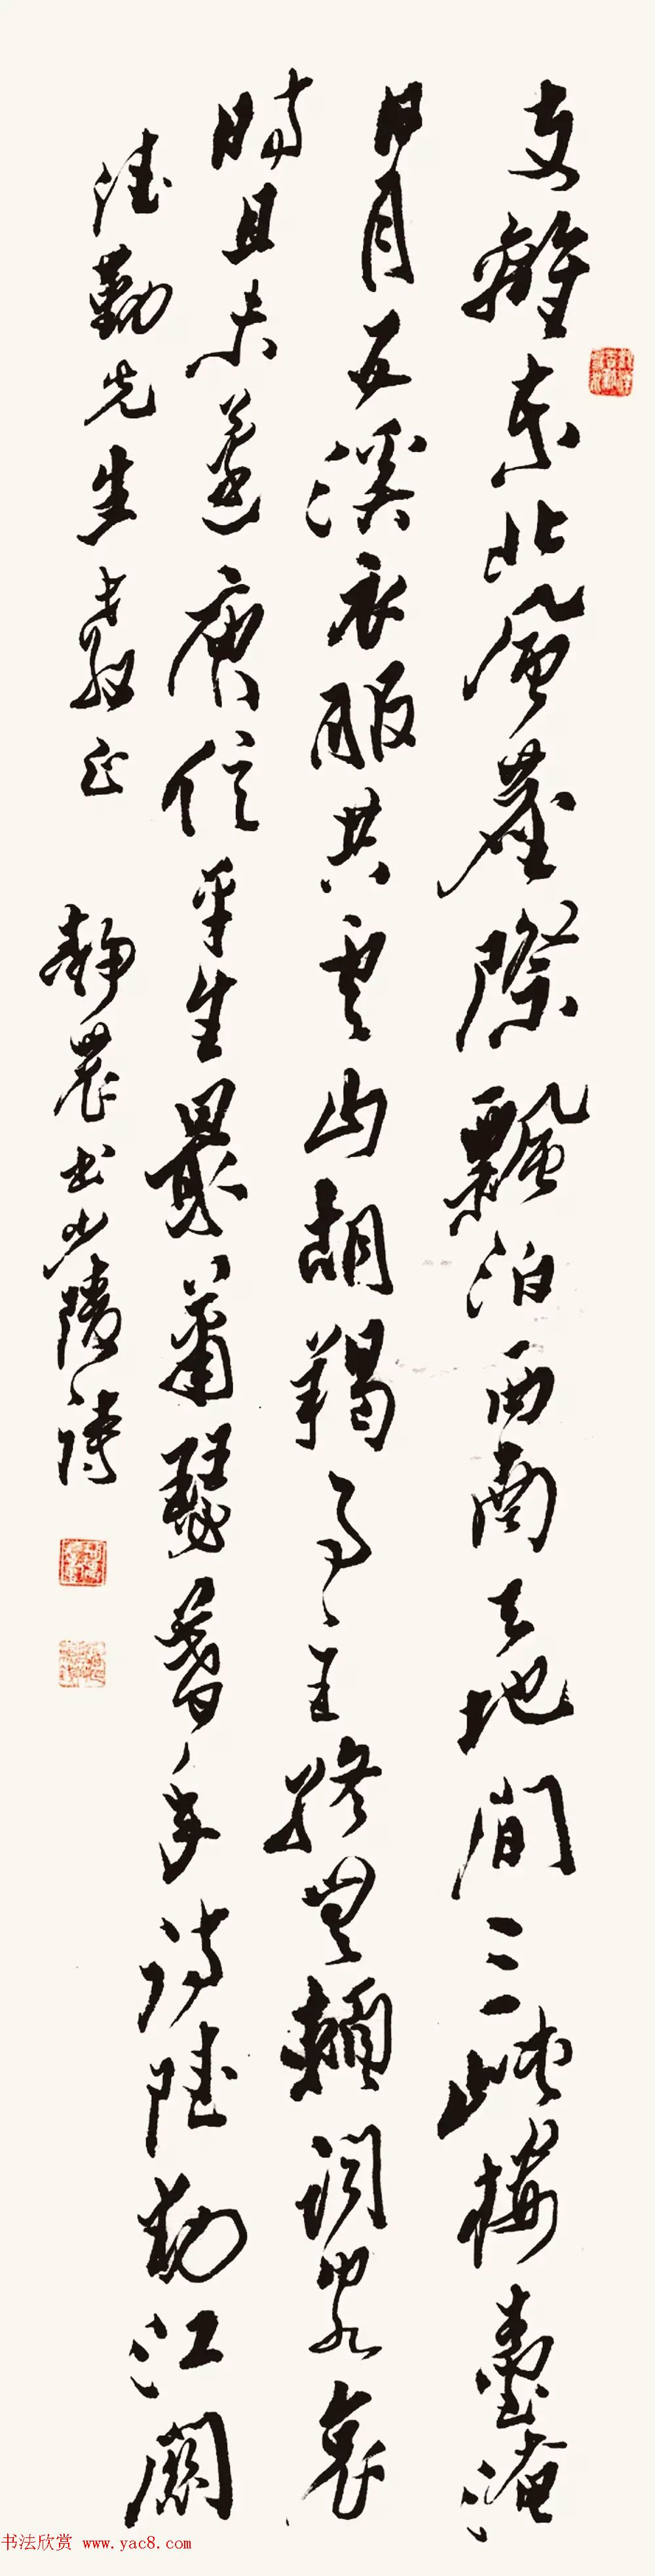 支離東北風塵際飄泊西南天地間三峽樓臺淹
日月五溪衣服共雲山胡羯事主終無賴詞客哀
時且未還庾信平生最蕭瑟暮年詩賦動江關
勤先生教正 靜農書少陵詩
书法欣赏 www.yac8.com